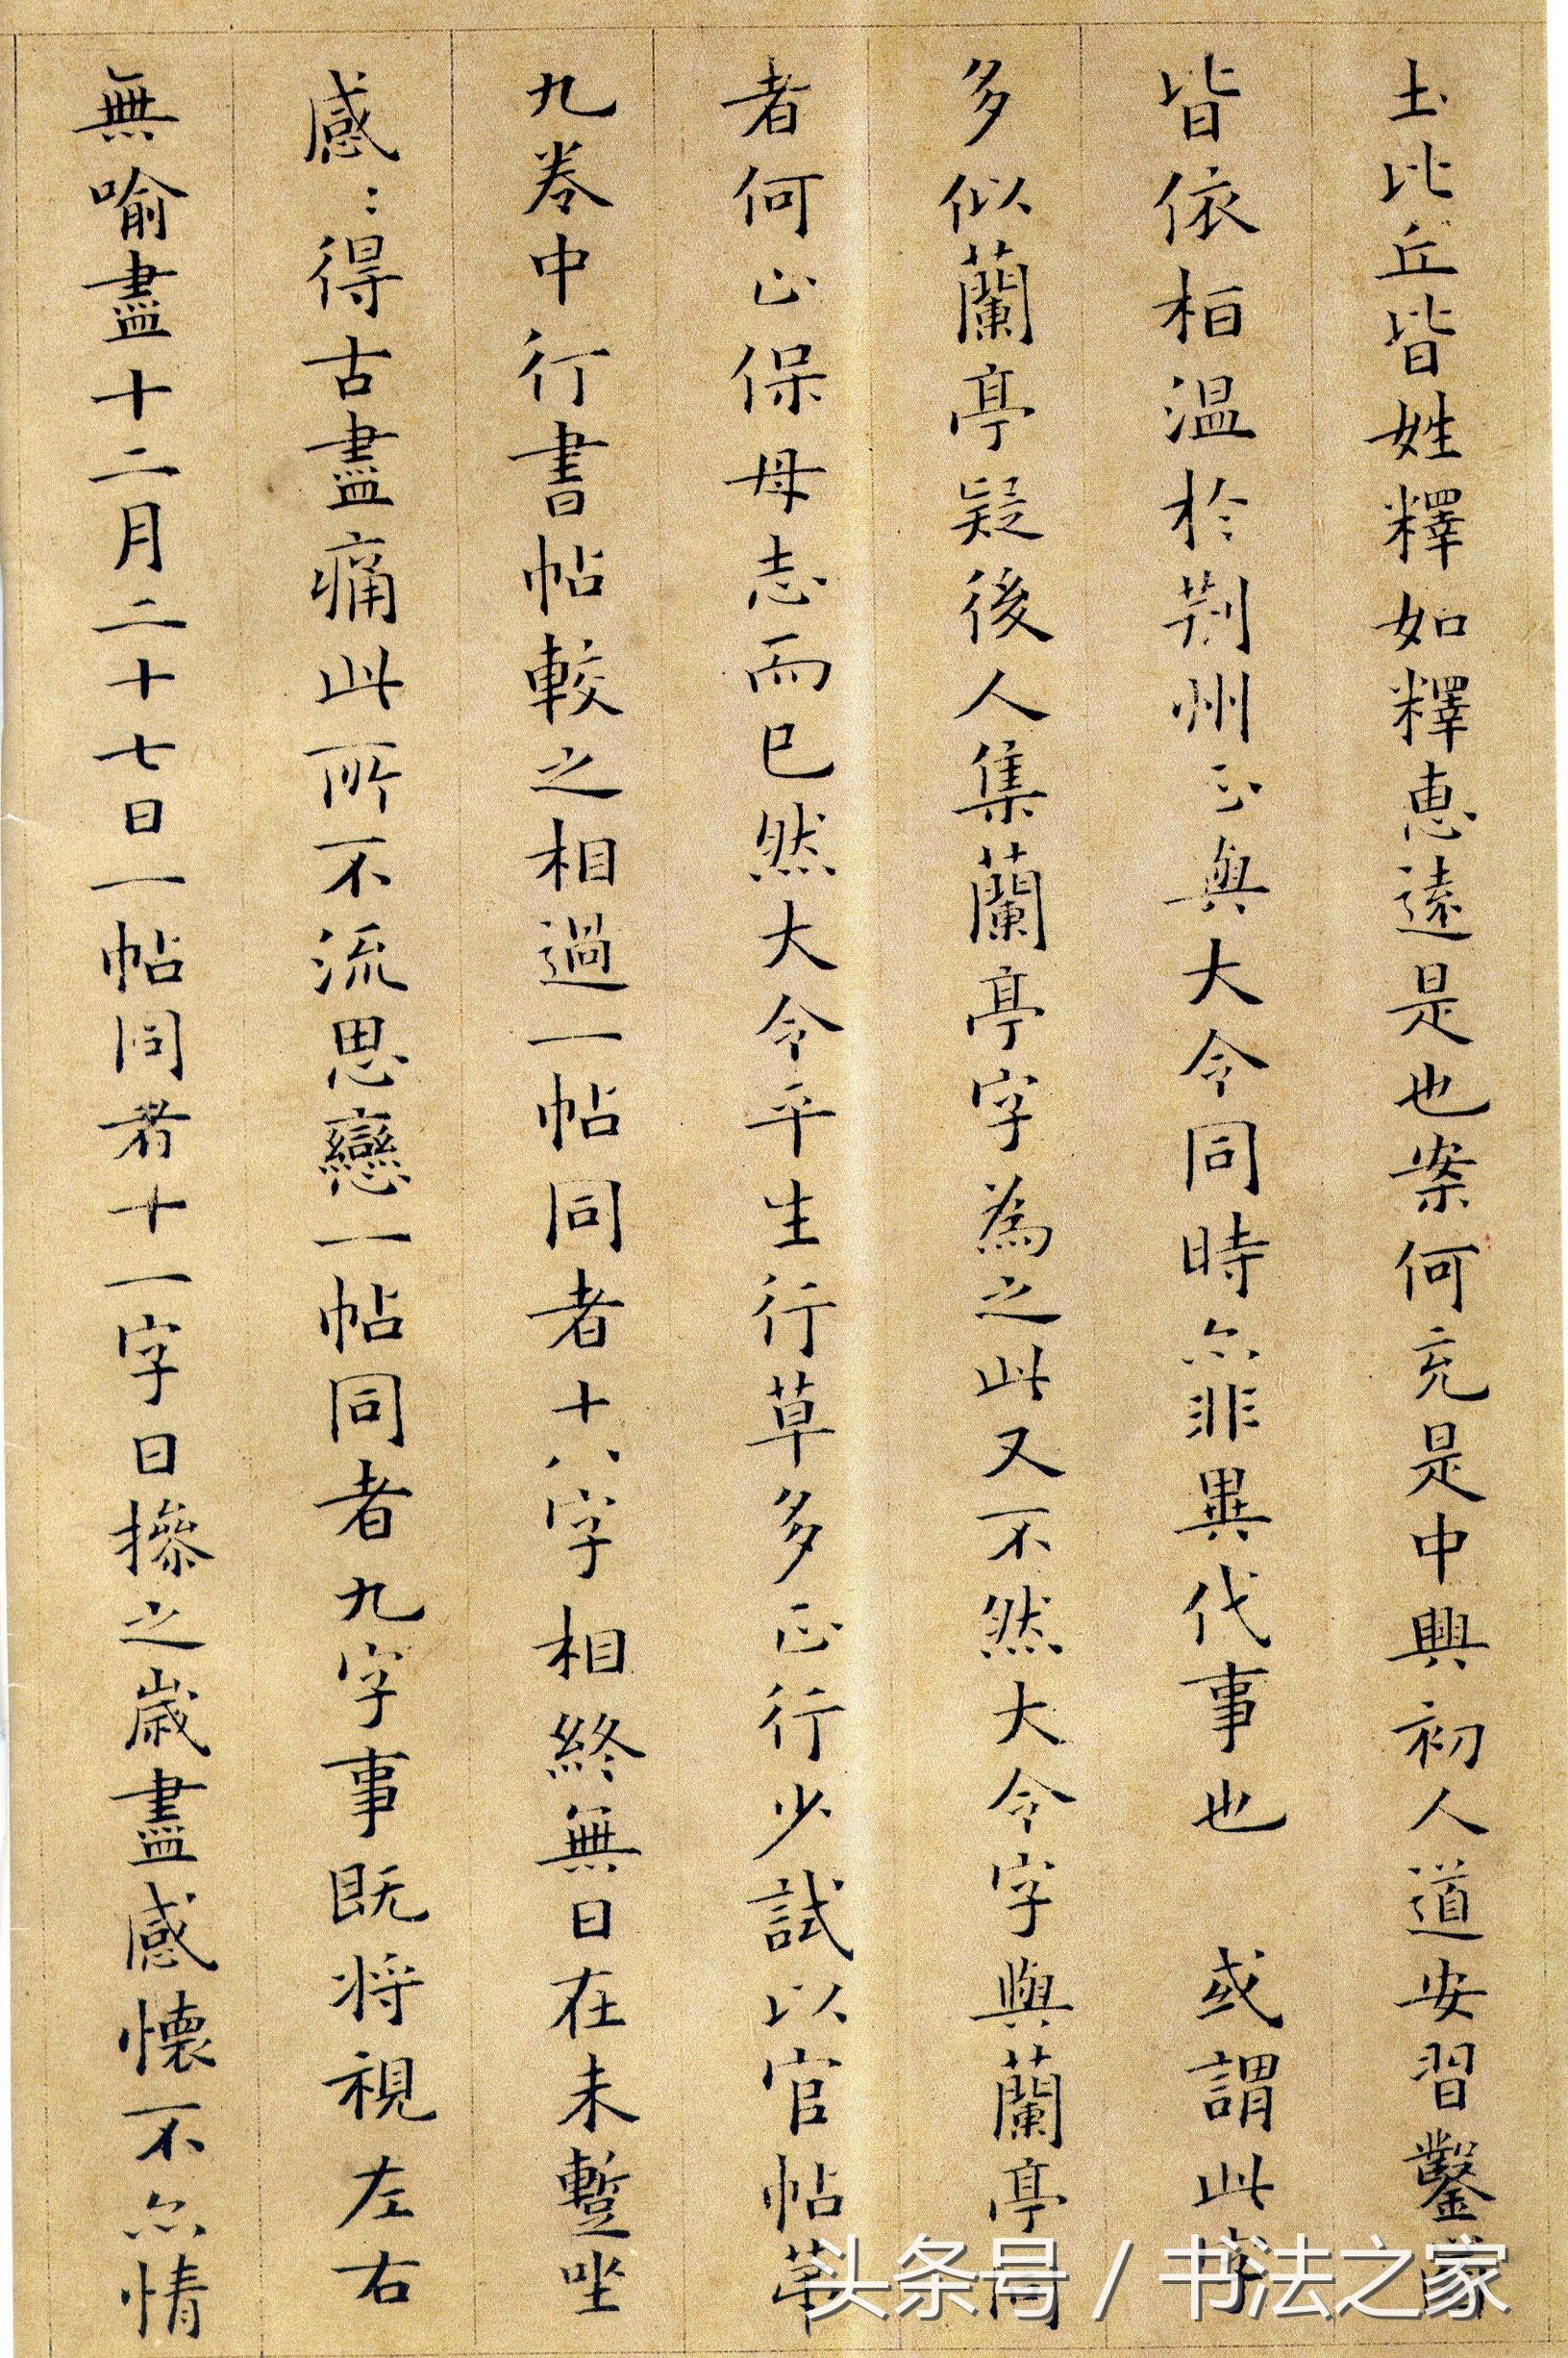 土比丘皆姓釋如釋惠遠是也案何充是中興初人道安習鑿
皆依桓温於荆州正與大令同時亦非異代事也 或謂此字
多似蘭亭疑後人集蘭亭字為之此又不然大令字與蘭亭同
者何止保母志而已然大令平生行草多正行少試以官帖第
九卷中行書帖較之相過一帖同者十八字相終無日在未蹔坐
感:得古盡痛此所不流思戀一帖同者九字事既将視左右
無喻盡十二月二十七日一帖同者十一字日摻之嵗盡感懷不亦情
头条号 / 书法之家